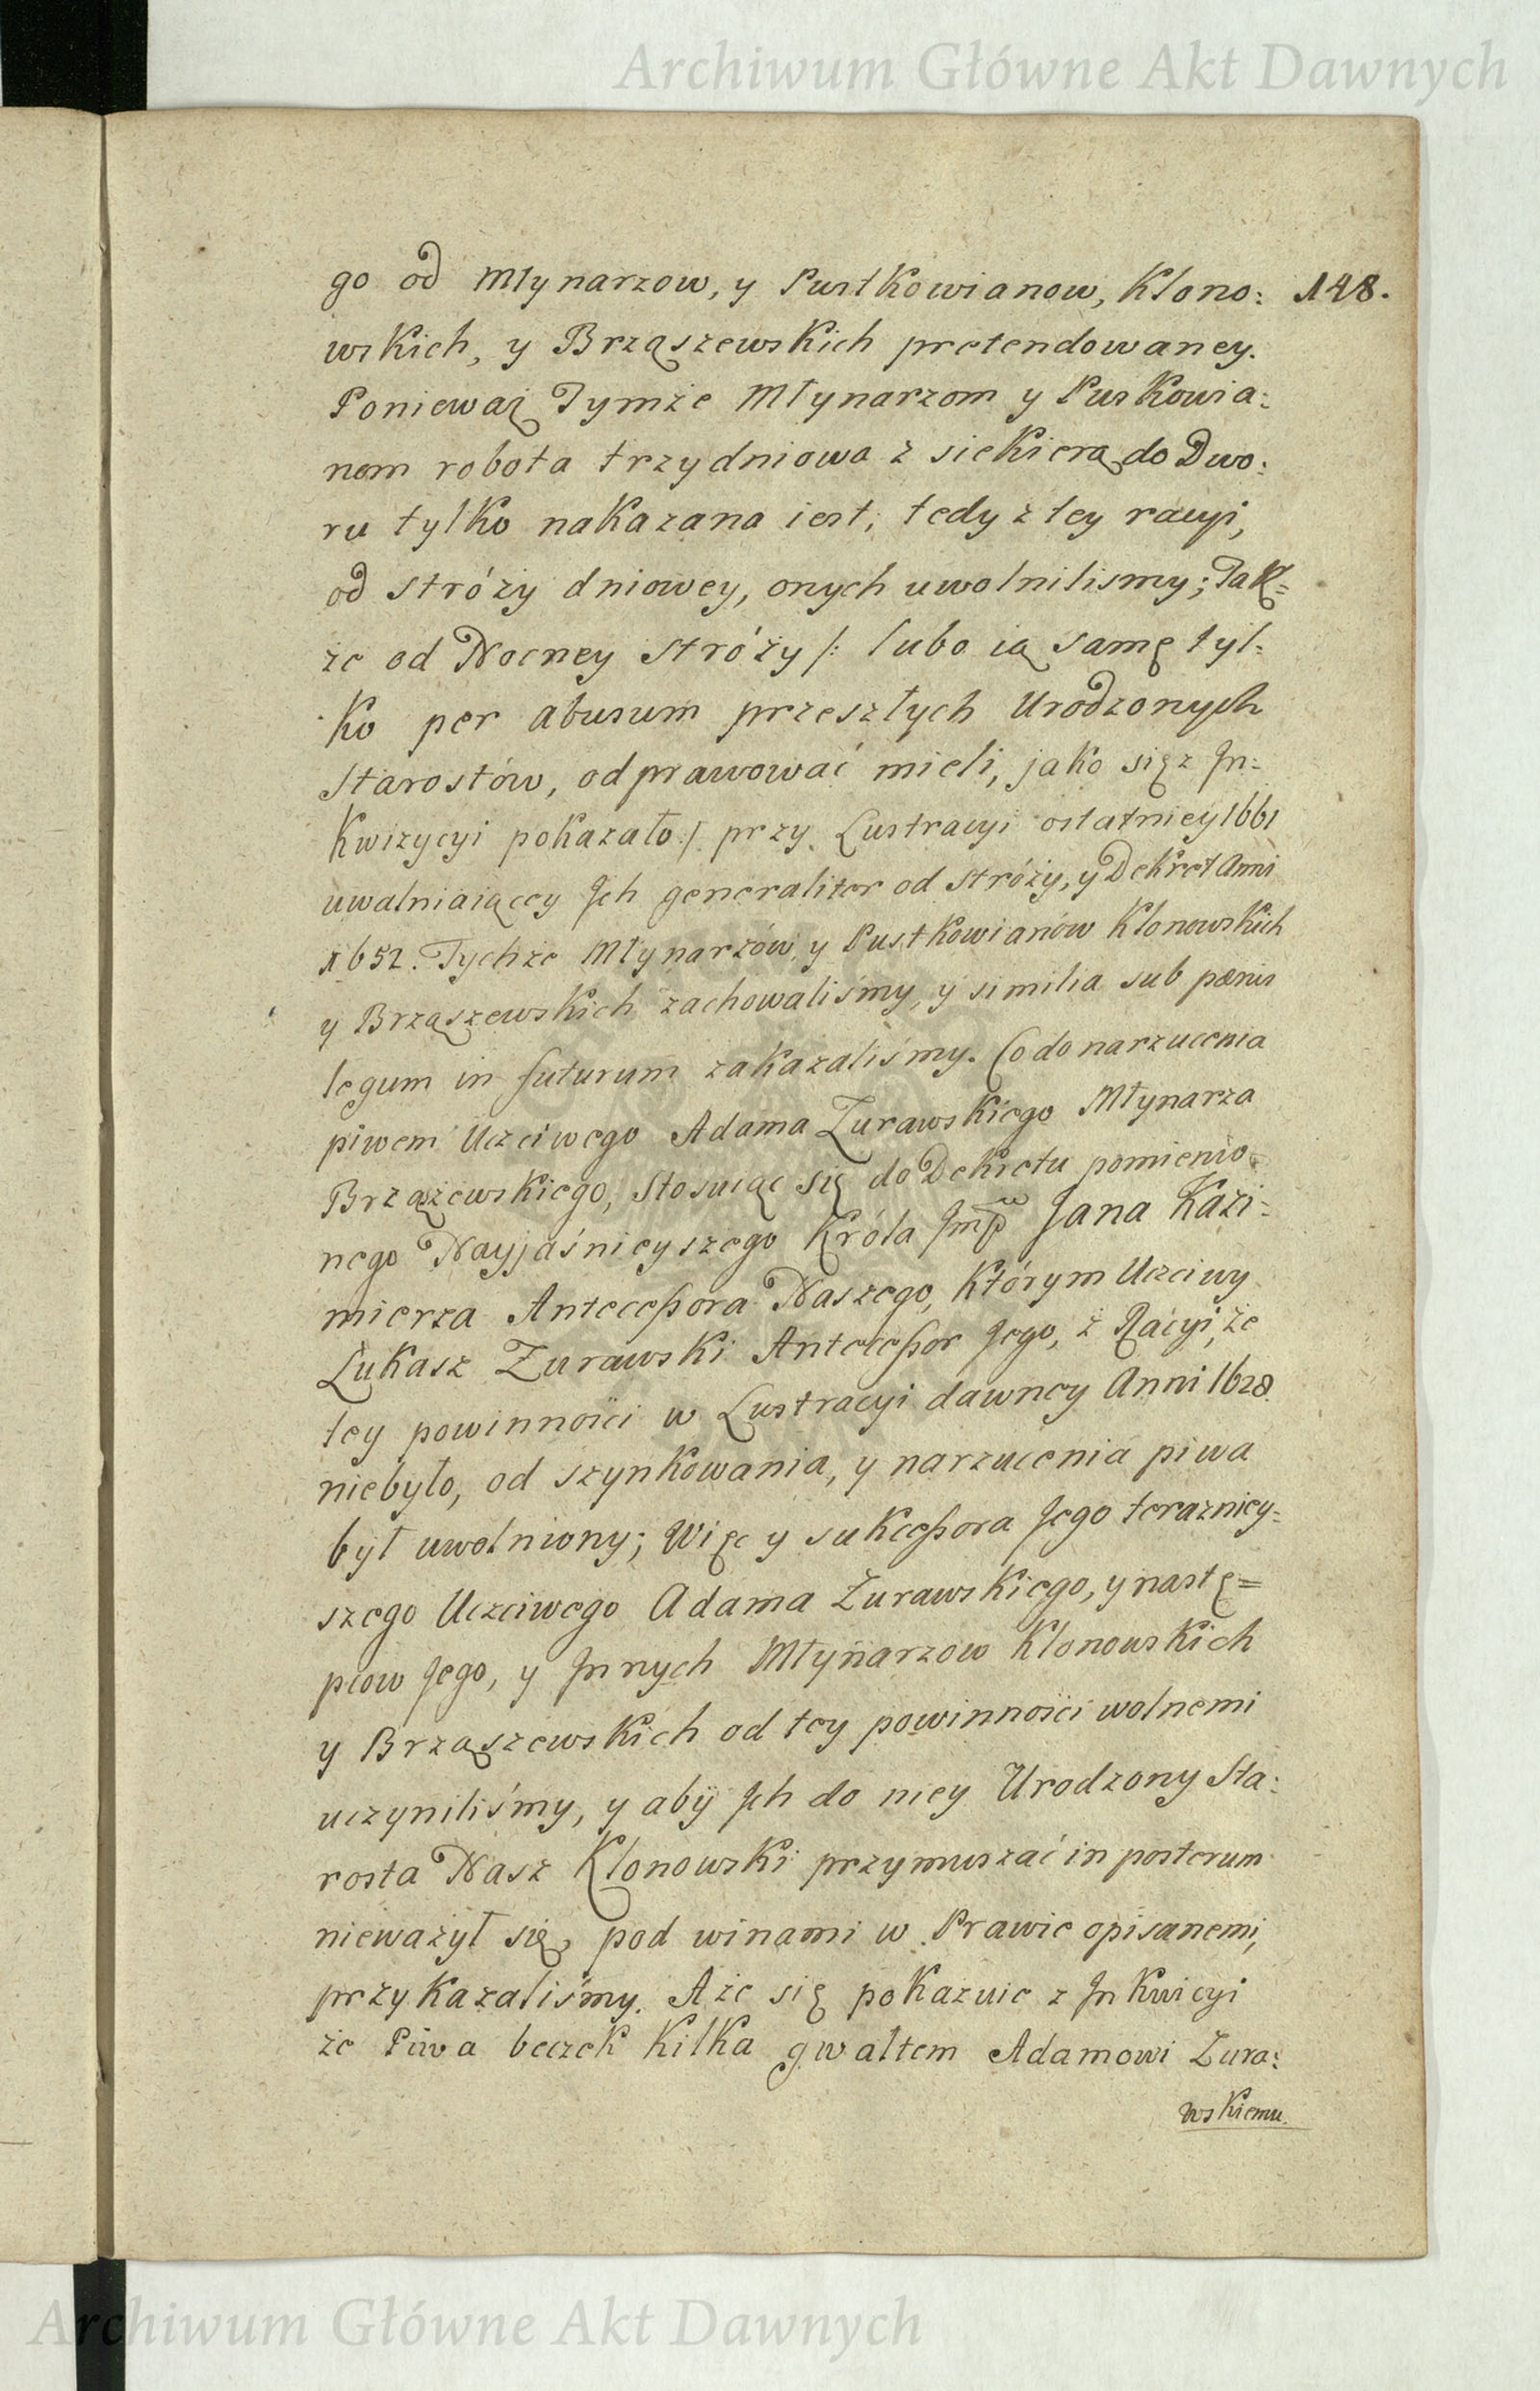 Archiwum Główne Akt Dawnych
go od Młynarzow, y Pustkowianow, Klono: 148.
wskich, y Brząszewskich pretendowaney.
Poniewaz Tymże Młynarzom y Puskowia:
nom robota trzydniowa z siekierą do Dwo:
ru tylko nakazana iest; tedy z tey racyi,
od stróży dniowey, onych uwolnilismy; Tak=
że od Nocney stróży /: lubo ią samę tyl:
ko per abusum przeszłych Urodzonych
Starostów, odprawować mieli, jako się z Jn:
kwizycyi pokazało :/ przy Lustracyi ostatniey 1661
uwalniaiącey Jch generaliter od stróży, y Dekret Anni
1652. Tychże Młynarzów, y Pustkowianów Klonowskich
y Brząszewskich zachowaliśmy, y similia sub pænis
legum in futurum zakazaliśmy. Co do narzucenia
piwem Uczciwego Adama Zurawskiego Młynarza
Brzążewskiego, stosuiąc się do Dekretu pomienio:
nego Nayjaśnieyszego Króla Jmp Jana Kazi:
mierza Anteceßora Naszego, którym Uczciwy
Łukasz Zurawski Anteceßor Jego, z Racyi, że
tey powinności w Lustracyi dawney Anni 1628.
niebyło, od szynkowania, y narzucenia piwa
był uwolniony; Więc y sukceßora Jego terazniey=
szego Uczciwego Adama Żurawskiego, y nastę=
pcow Jego, y Jnnych Młynarzow Klonowskich
y Brząszewskich od tey powinności wolnemi
uczyniliśmy, y abÿ Jch do niey Urodzony Sta:
rosta Nasz Klonowski przymuszać in posterum
nieważył się, pod winami w Prawie opisanemi,
przykazaliśmy. A że się pokazuie z Jnkwicyi
że Piwa beczek kilka gwałtem Adamowi Zura:
wskiemu.
Archiwum Główne Akt Dawnych